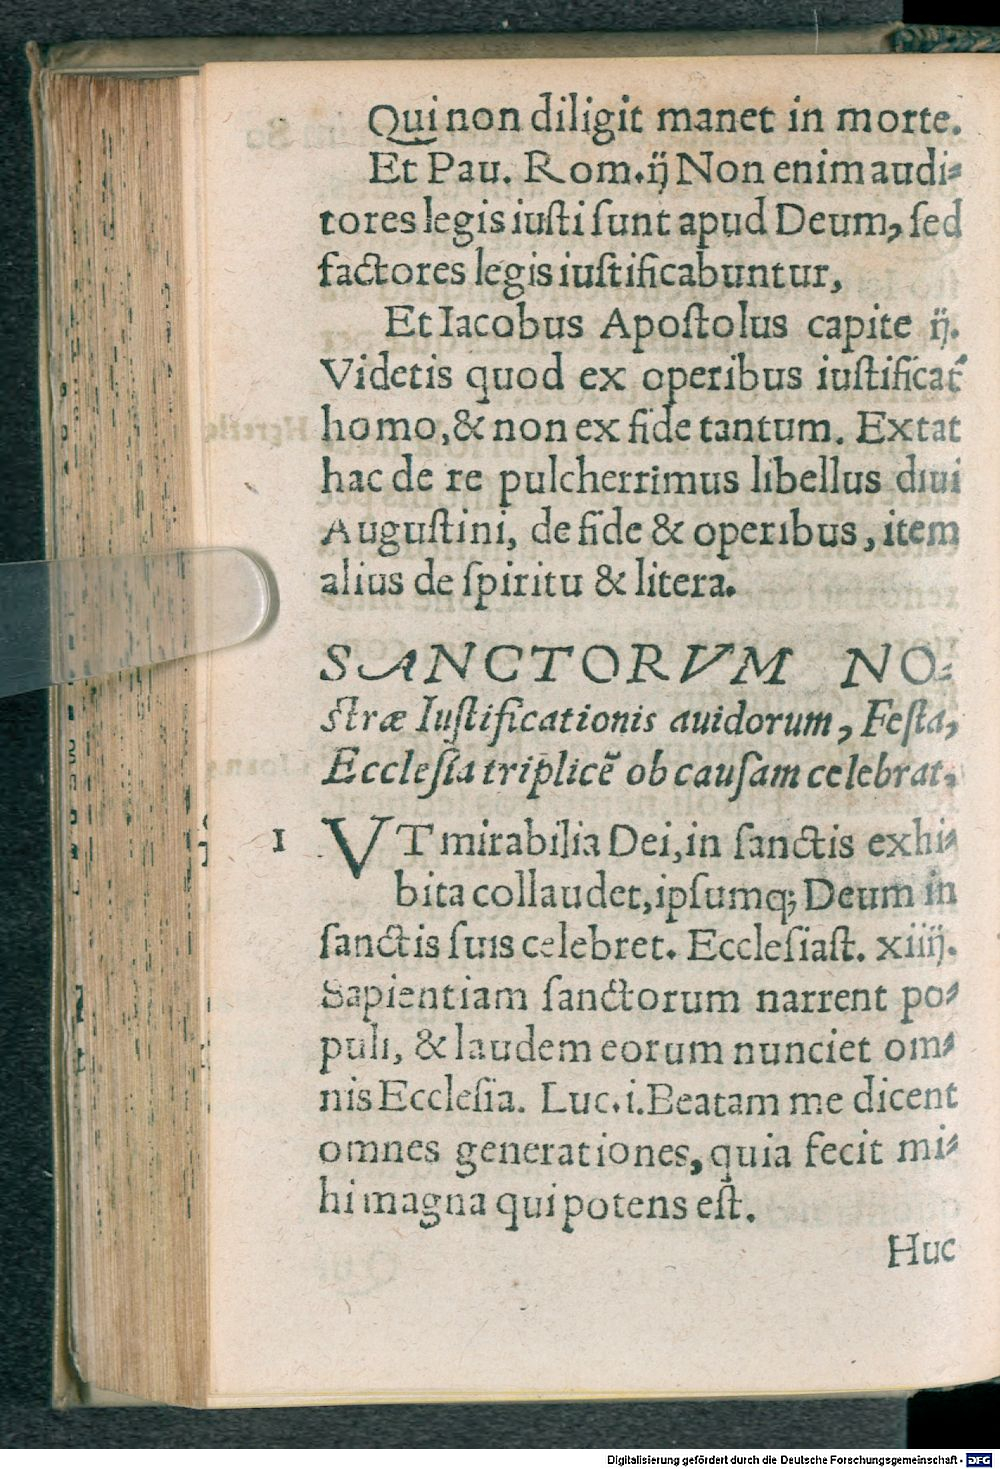 Qui non diligit manet in morte.
Et Pau. Rom. ij Non enim audi⸗
tores legis iusti sunt apud Deum, sed
factores legis iustificabuntur,
Et Iacobus Apostolus capite ij.
Videtis quod ex operibus iustificat᷑
homo, & non ex fide tantum. Extat
hac de re pulcherrimus libellus diui
Augustini, de fide & operibus, item
alius de spiritu & litera.
SANCTORVM NO⸗
stræ Iustificationis auidorum, Festa,
Ecclesia triplicẽ ob causam celebrat.
1 VT mirabilia Dei, in sanctis exhi⸗
bita collaudet, ipsumq; Deum in
sanctis suis celebret. Ecclesiast. xiiij.
Sapientiam sanctorum narrent po⸗
puli, & laudem eorum nunciet om⸗
nis Ecclesia. Luc. i. Beatam me dicent
omnes generationes, quia fecit mi⸗
hi magna qui potens est.
Huc
Digitalisierung gefördert durch die Deutsche Forschungsgemeinschaft - DFG